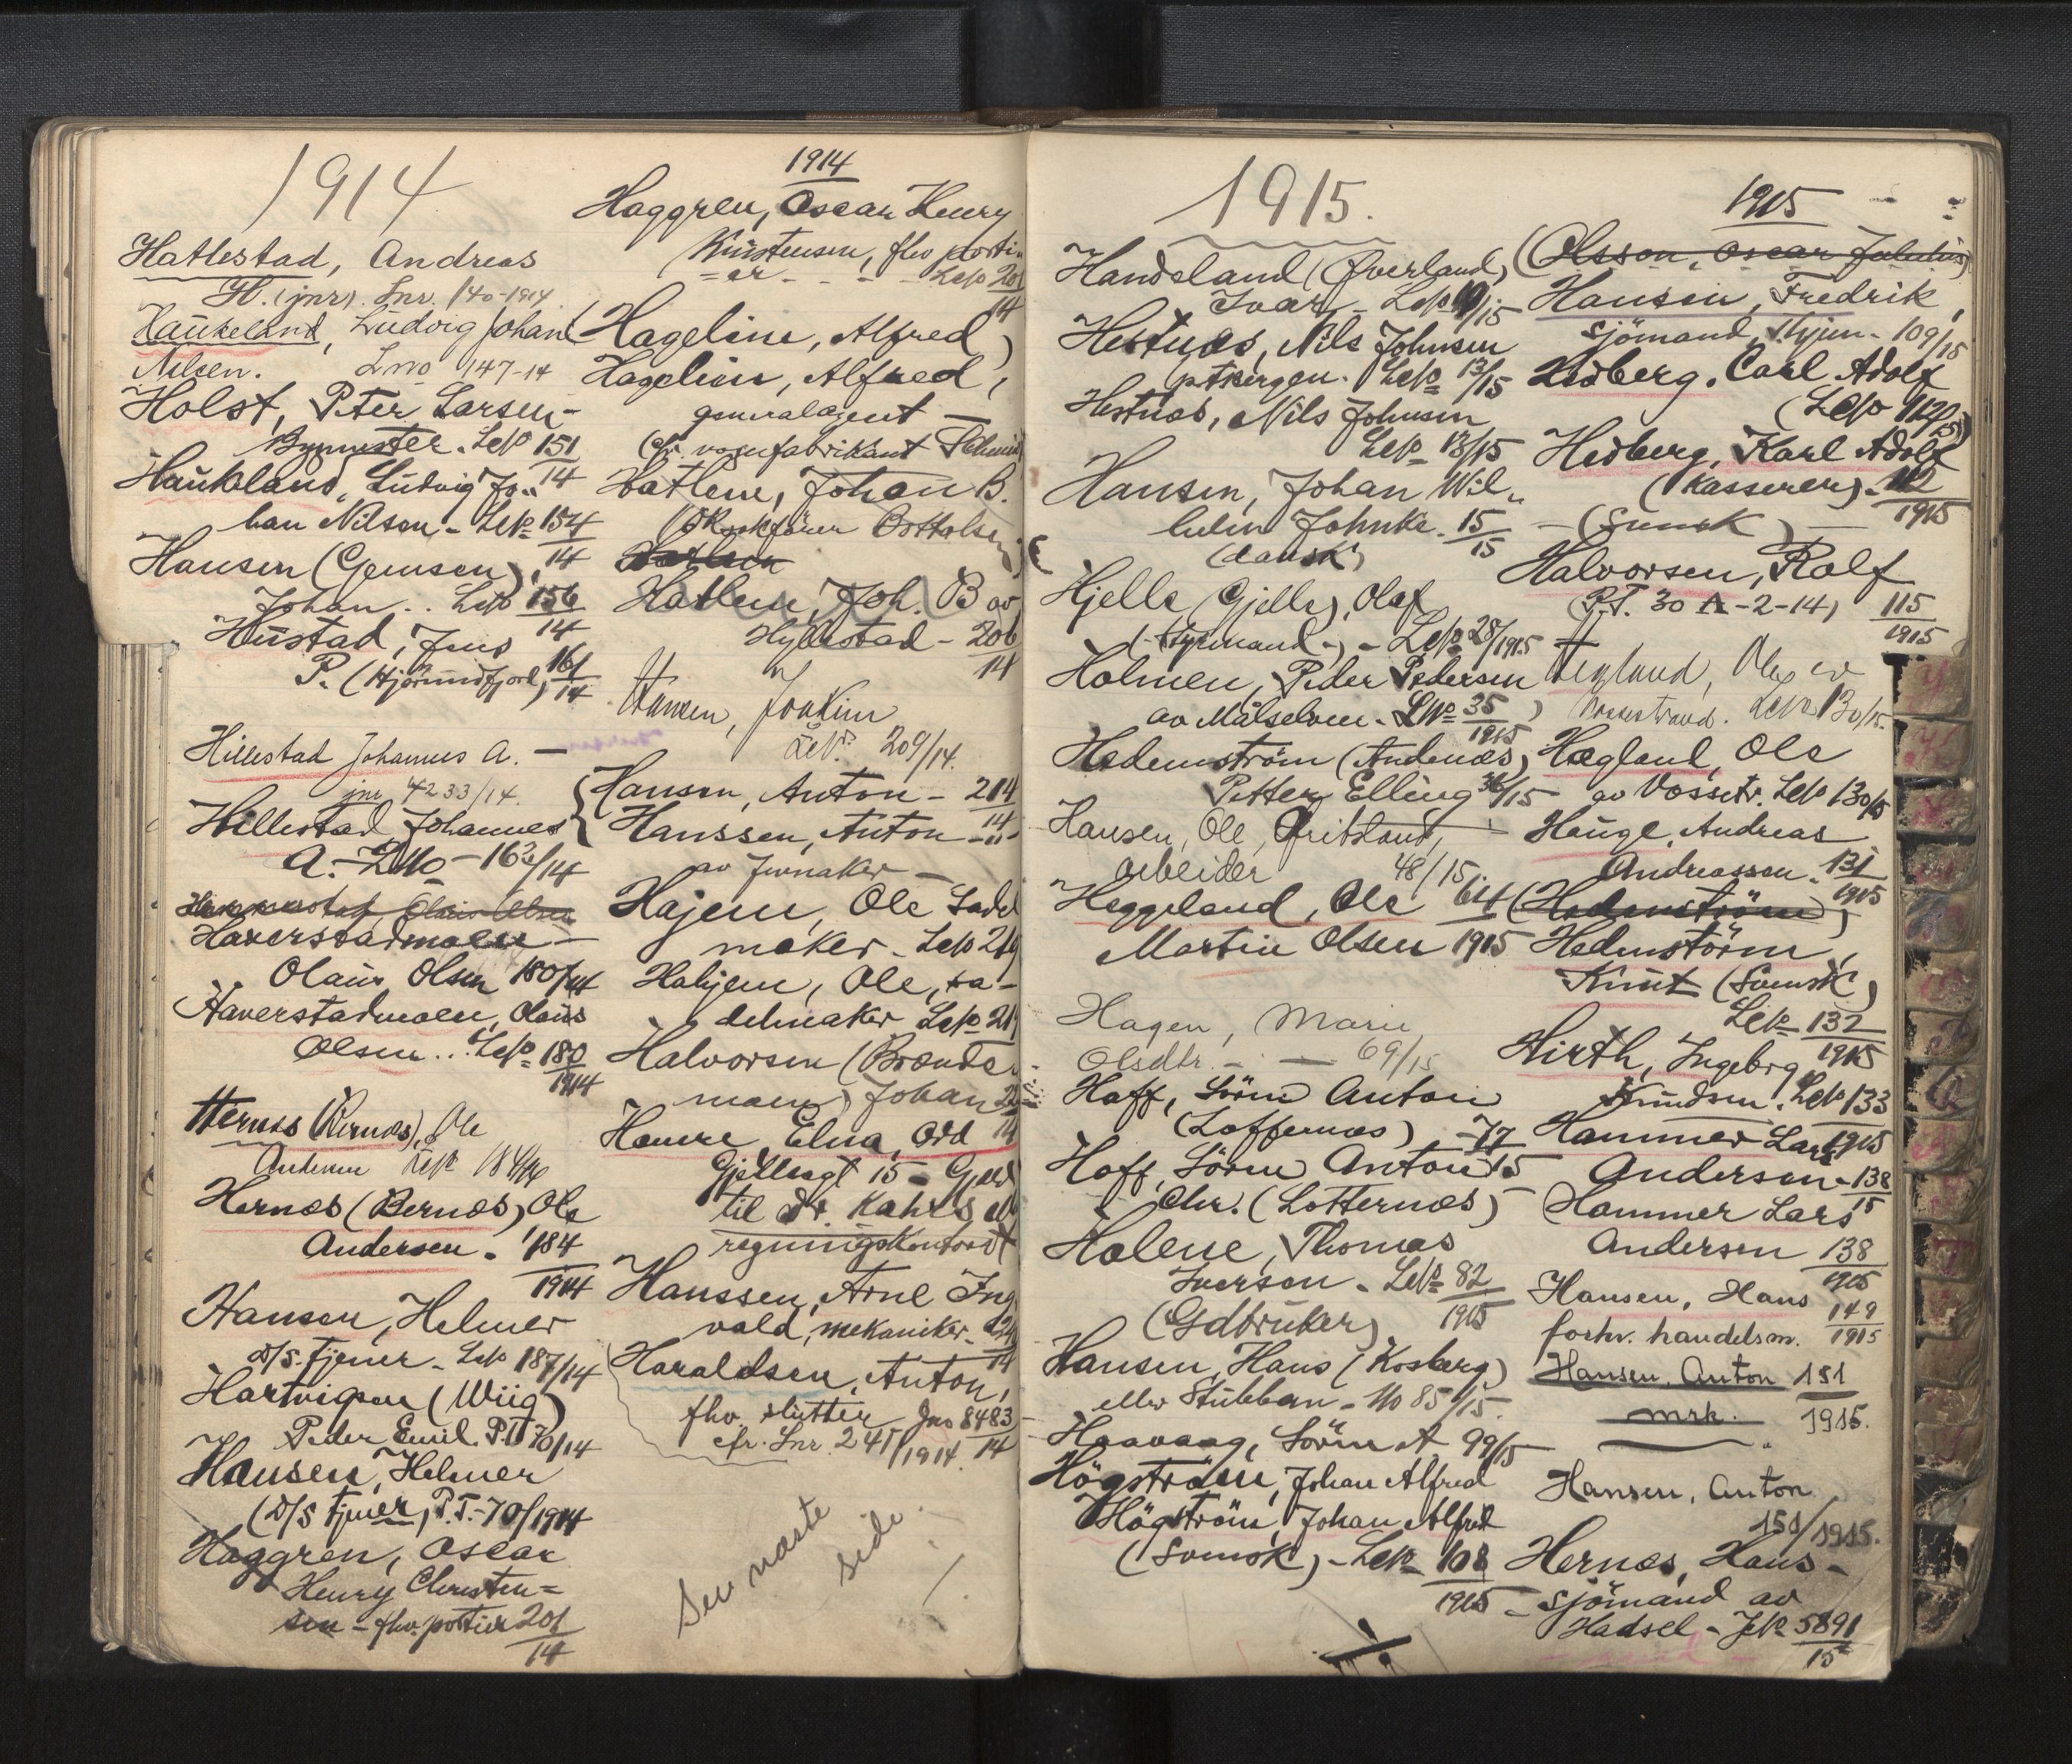 1914
Hatlestad, Andreas
H. (jnr). Lnr. 140-1914
Haukeland, Ludvig Johan
Nilsen. Lno 147-14
Holst, Peter Larsen -
Løp 151/14
Haukeland, Ludvig Jo„
han Nilsen - Løp 154/14
Hansen (Gemsen),
Johan .. Løp 156/14
Hustad, Jens
P. (Hjørundfjord) 161/14
Hillestad Johannes A. —
jnr 4233/14.
Hillestad Johannes
A. - LNo - 163/14
Haverstadmoen —
Olaus Olsen 180/14
Haverstadmoen, Olaus
Olsen .. Løp 180/1914
Hernes (Bernæs), Ole
Andersen Løp 184/14
Hernæs (Bernæs) Ole
Andersen - 184/1914
Hansen, Helmer
d/s. tjener - Løp 187/14
Hartvigsen (Wiig)
Peder Emil. P.T 70/14
Hansen, Helmer
(d/s tjener, P.T. - 70/1914
Haggren, Oscar
Henry Christen=
sen - fhv. portier 201/14
1914
Haggren, Oscar Henry
Kristensen, fhv porti„
=er - - - Løp 201/14
Hageline, Alfred)
Hagelien, Alfred,
generalagent —
(cfr. vognfabrikant Schmidt
Hatlem, Johan B.
Hatlem, Joh. B av
Hyllestad - 206/14
Hansen, Joakim
LNo 209/14.
Hansen, Anton - 214/14
Hanssen, Anton - „ -
av Jevnaker —
Hajem, Ole Sadel
maker - Løp 219
Hahjem, Ole, sa-
delmaker Løp 219
Halvorsen (Brænde„
moen) Johan
Hauere, Elna, Odd
Gjellesgt 15 - Gjæld
til dr. Kahrs eller
regningskontoret
Hanssen, Arne Ing
vald, mekaniker - 14
Haraldsen, Anton,
fhv. slutter Jno 8483/14
cfr. Lnr. 241/1914.
Sev næste
side.
1915.
Handeland (Øverland,)
Ivar - Løp 10/15
Hestnæs, Nils Johnsen
Løp 13/15
Hestnæs, Nils Johnsen
Løp 13/15
Hansen, Johan Wil„
helm Johnke. 15/15
(dansk)
Hjelle (Gjelle), Olaf
(- styrmand -) - Løp 28/1915
Holmen, Peder Pedersen
av Målselven - LNo 35/1915
Hedemström (Andenæs)
Petter Elling 36/15
Hansen, Ole, Gritsland,
arbeider 48/15.
Heggeland, Ole 64/1915
Martin Olsen
Hagen, Marie
Olsdtr. - — 69/15
Hoff, Sören Anton
(Loffernæs) - 77/15
Hoff, Sören Anton
Chr. (Lotternæs)
Holene, Thomas
Iverson - Løp 82/1915
(Gdbruker)
Hansen, Hans (Kosberg)
eller Stubban - No 85/15.
Haavaag, Sören A 99/15
Högström, Johan Alfred
Högström, Johan Alfred
(svensk) - Løp 108/1915
1915
(Olsson, Oscar Julius)
Hansen, Fredrik,
sjömand, Thjøm - 109/15
Hedberg, Carl Adolf
(Løp 112/15)
Hedberg, Karl Adolf
(kasserer) - 112/1915
— (svensk) —
Halvorsen, Rolf
(P.T. 30 A - 2 - 14) 115/1915
Hegland, Ole av
Vossestrand. Løp 130/15.
Hægland, Ole
av Vossestr. Løp 130/15
Hauge, Andreas
Andreassen. 131/1915
(Hedemström)
Hedmstörm,
Knut (svensk)
Løp 132/1915
Hirth, Ingebrg
Knudsen. Løp 133/1915
Hammer Lars
Andersen - 138/15
Hammer Lars
Andersen 138/1915
Hansen, Hans 149/1915
forhv. handelsm.
Hansen, Anton 151/1915.
mrk.
Hansen, Anton
151/1915.
Hernæs, Hans -
- sjömand av
Hadsel - JNo 5891/15